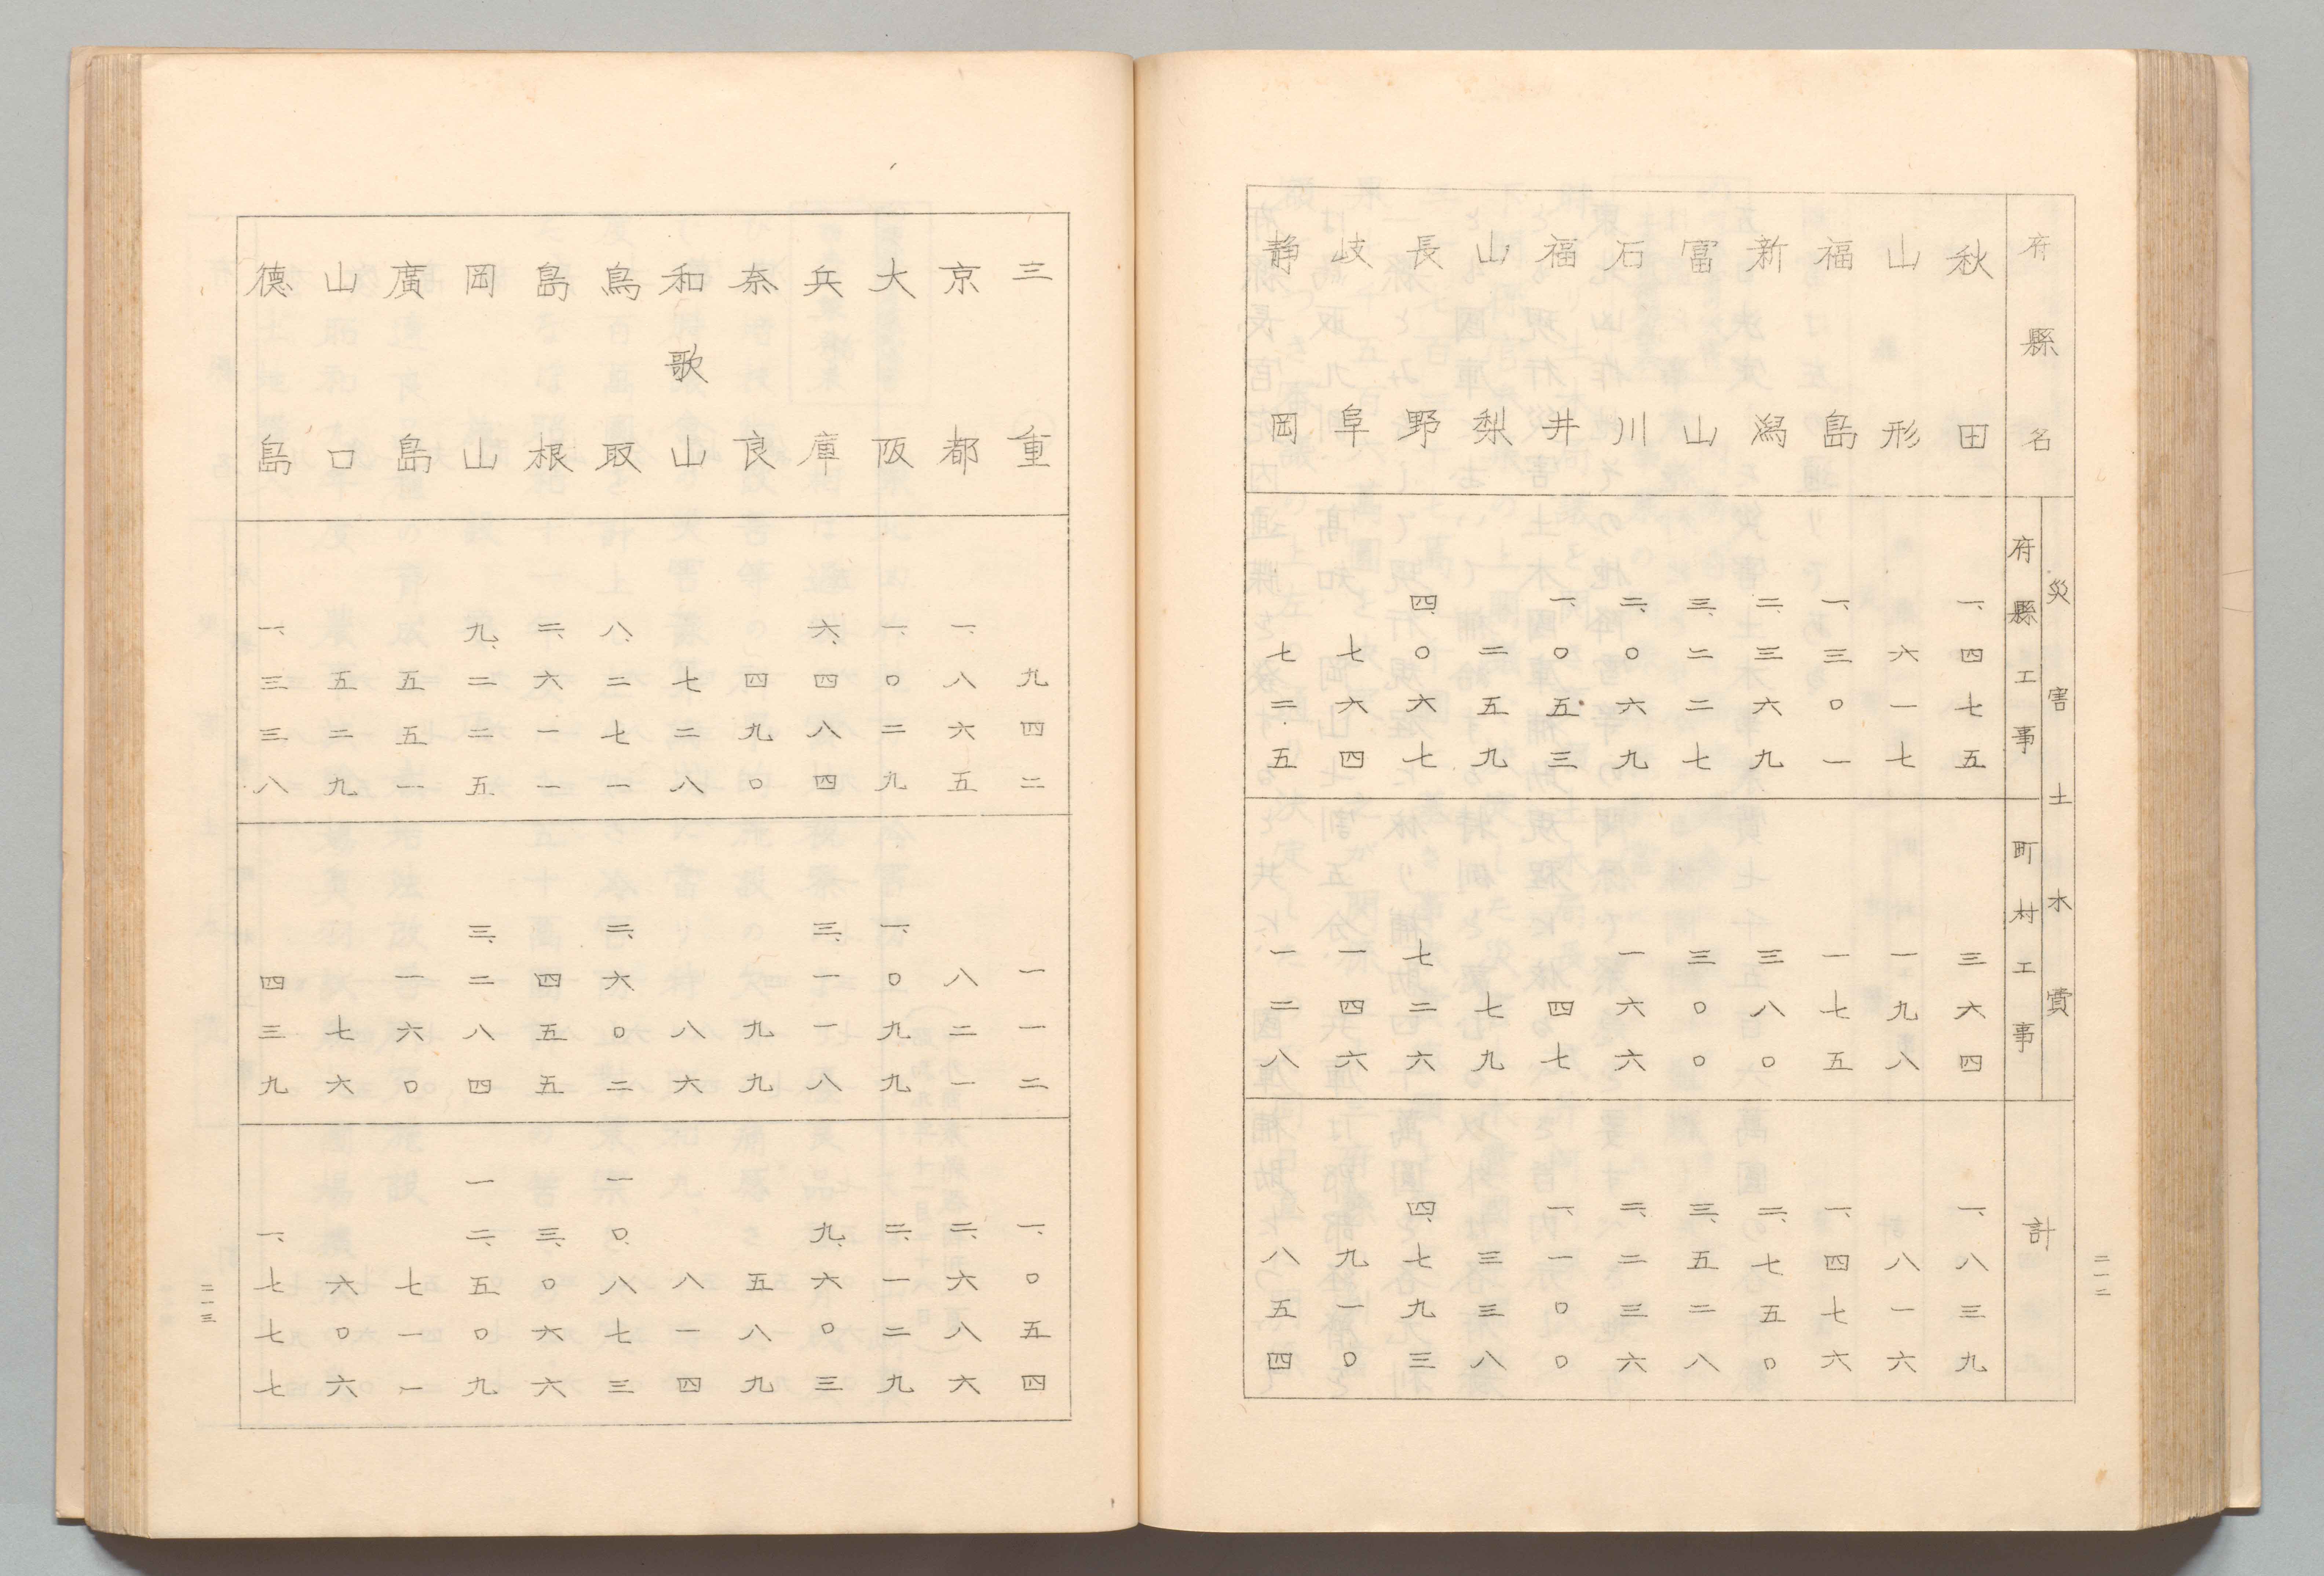 二一二
府縣名 災害土木費 計
府縣工事 町村工事
秋田 一、四七五 三六四 一、八三九
山形 六一七 一九八 八一六
福島 一、三〇一 一七五 一、四七六
新潟 二、三六九 三八〇 二、七五〇
富山 三、二二七 三〇〇 三、五二八
石川 二、〇六九 一六六 二、二三六
福井 一、〇五三 四七 一、一〇〇
山梨 二五九 七九 三三八
長野 四、〇六七 七二六 四、七九三
岐阜 七六四 一四六 九一〇
静岡 七二五 一二八 八五四
三重 九四二 一一二 一、〇五四
京都 一、八六五 八二一 二、六八六
大阪 一、〇二九 一、〇九九 二、一二九
兵庫 六、四八四 三、一一八 九、六〇三
奈良 四九〇 九九 五八九
和歌山 七二八 八六 八一四
鳥取 八、二七一 二、六〇二 一〇、八七三
島根 二、六一一 四五五 三、〇六六
岡山 九、二二五 三、二八四 一二、五〇九
廣島 五五一 一六〇 七一一
山口 五二九 七六 六〇六
德島 一、三三八 四三九 一、七七七
二一三